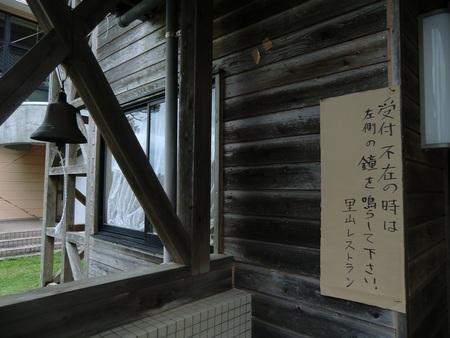 受付不在の時は
左側の鐘を鳴らして下さい!
里山レストラン